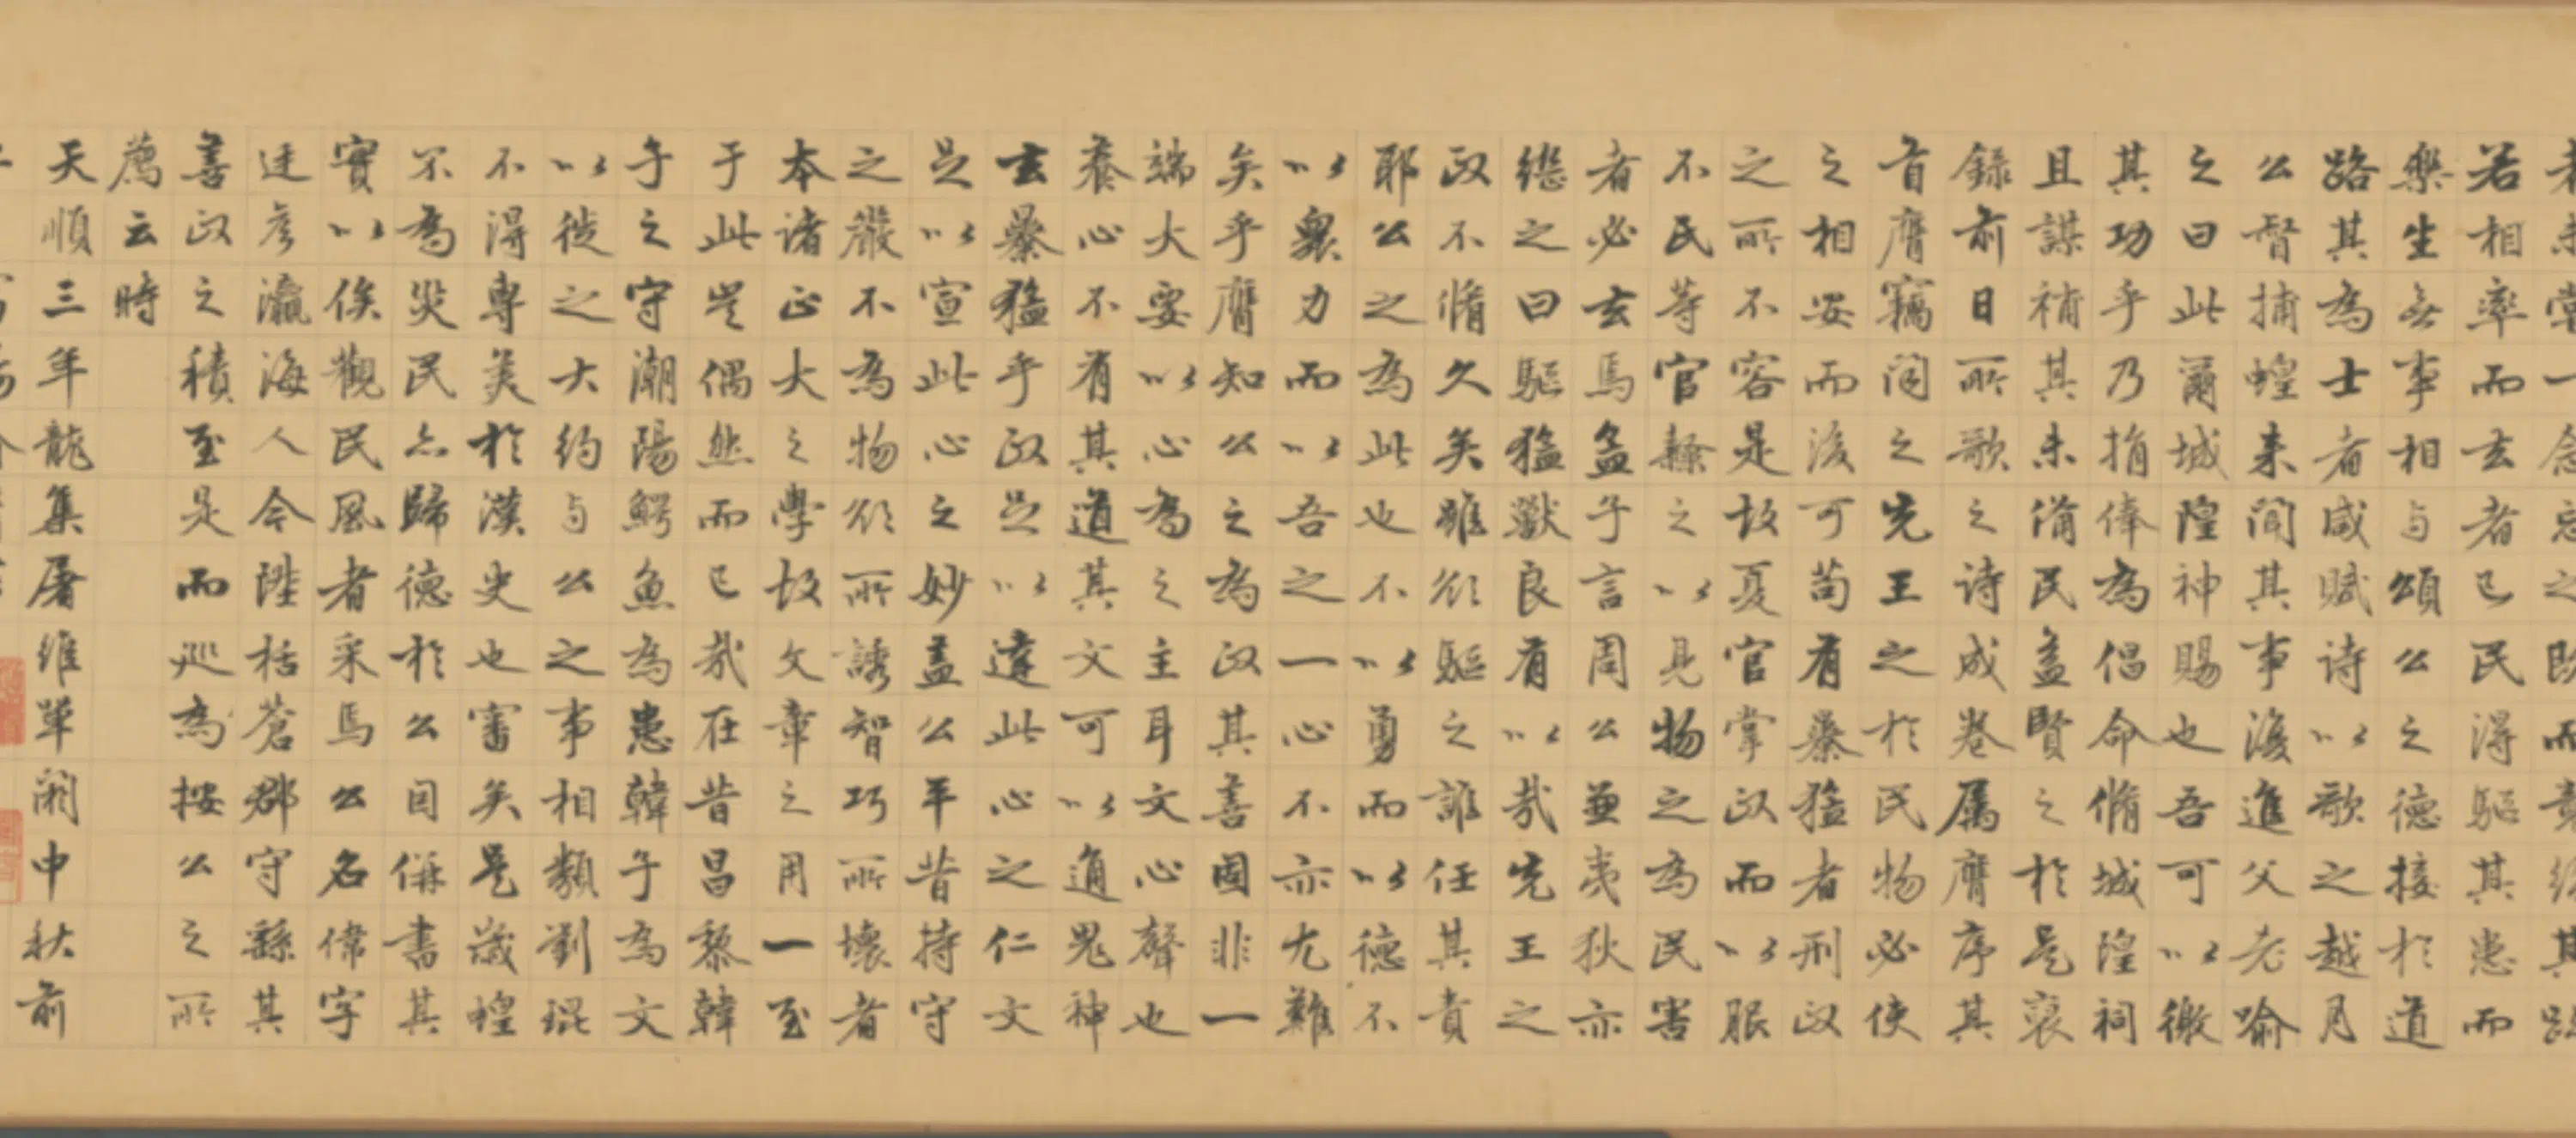 若相率而去者已民得驅其患而
樂生無事相与頌公之德接於道
路其為士者咸賦诗以歌之越月
公督捕蝗来間其事後進父老喻
之曰此爾城隍神賜也吾可以徼
其功乎乃捐俸為倡命脩城隍祠
且謀補其未備民益賢之於是裒
録前日所歌之诗成巻属膺序其
首膺竊聞之先王之於民物必使
之相安而後可苟有暴猛者刑政
之所不容是故夏官掌政而以服
不民等官隸之以見物之為民害
者必去焉孟子言周公兼夷狄亦
繼之曰驅猛獸良有以哉先王之
政不脩久矣雖欲驅之誰任其責
耶公之為此也不以勇而以德不
以衆力而以吾之一心不亦尤難
矣乎膺知公之為政其善固非一
端大要以心為之主耳文心聲也
養心不有其道其文可以通鬼神
去暴猛乎政足以達此心之仁文
足以宣此心之妙盖公平昔持守
之嚴不為物欲所誘智巧所壞者
本諸正大之學故文章之用一至
于此豈偶然而已哉在昔昌黎韓
子之守潮陽鰐魚為患韓子為文
以徙之大約与公之事相類劉琨
不得専美於漢史也審矣是歳蝗
不為災民亦歸德於公因併書其
實以俟觀民風者采焉公名偉字
廷彦瀛海人今陞栝蒼郡守縣其
善政之積至是而巡為按公之所
薦云時
天順三年龍集屠維單閼中秋前